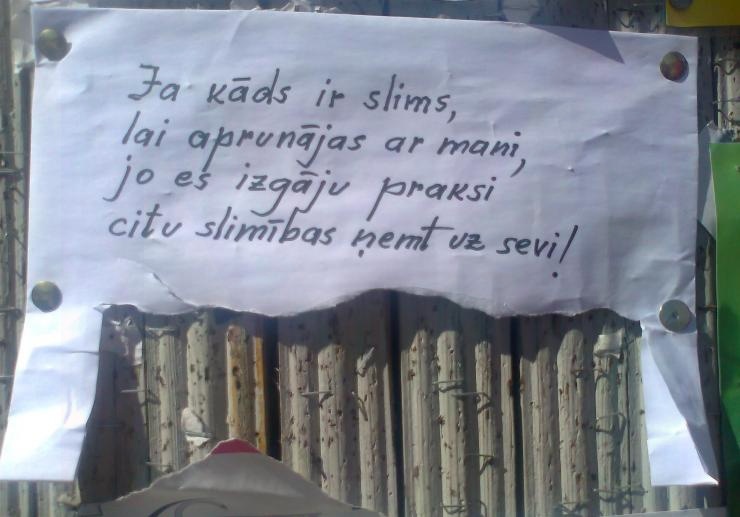 Ja kāds ir slims,
lai aprunājas ar mani,
jo es izgāju praksi
citu slimības ņemt uz sevi!